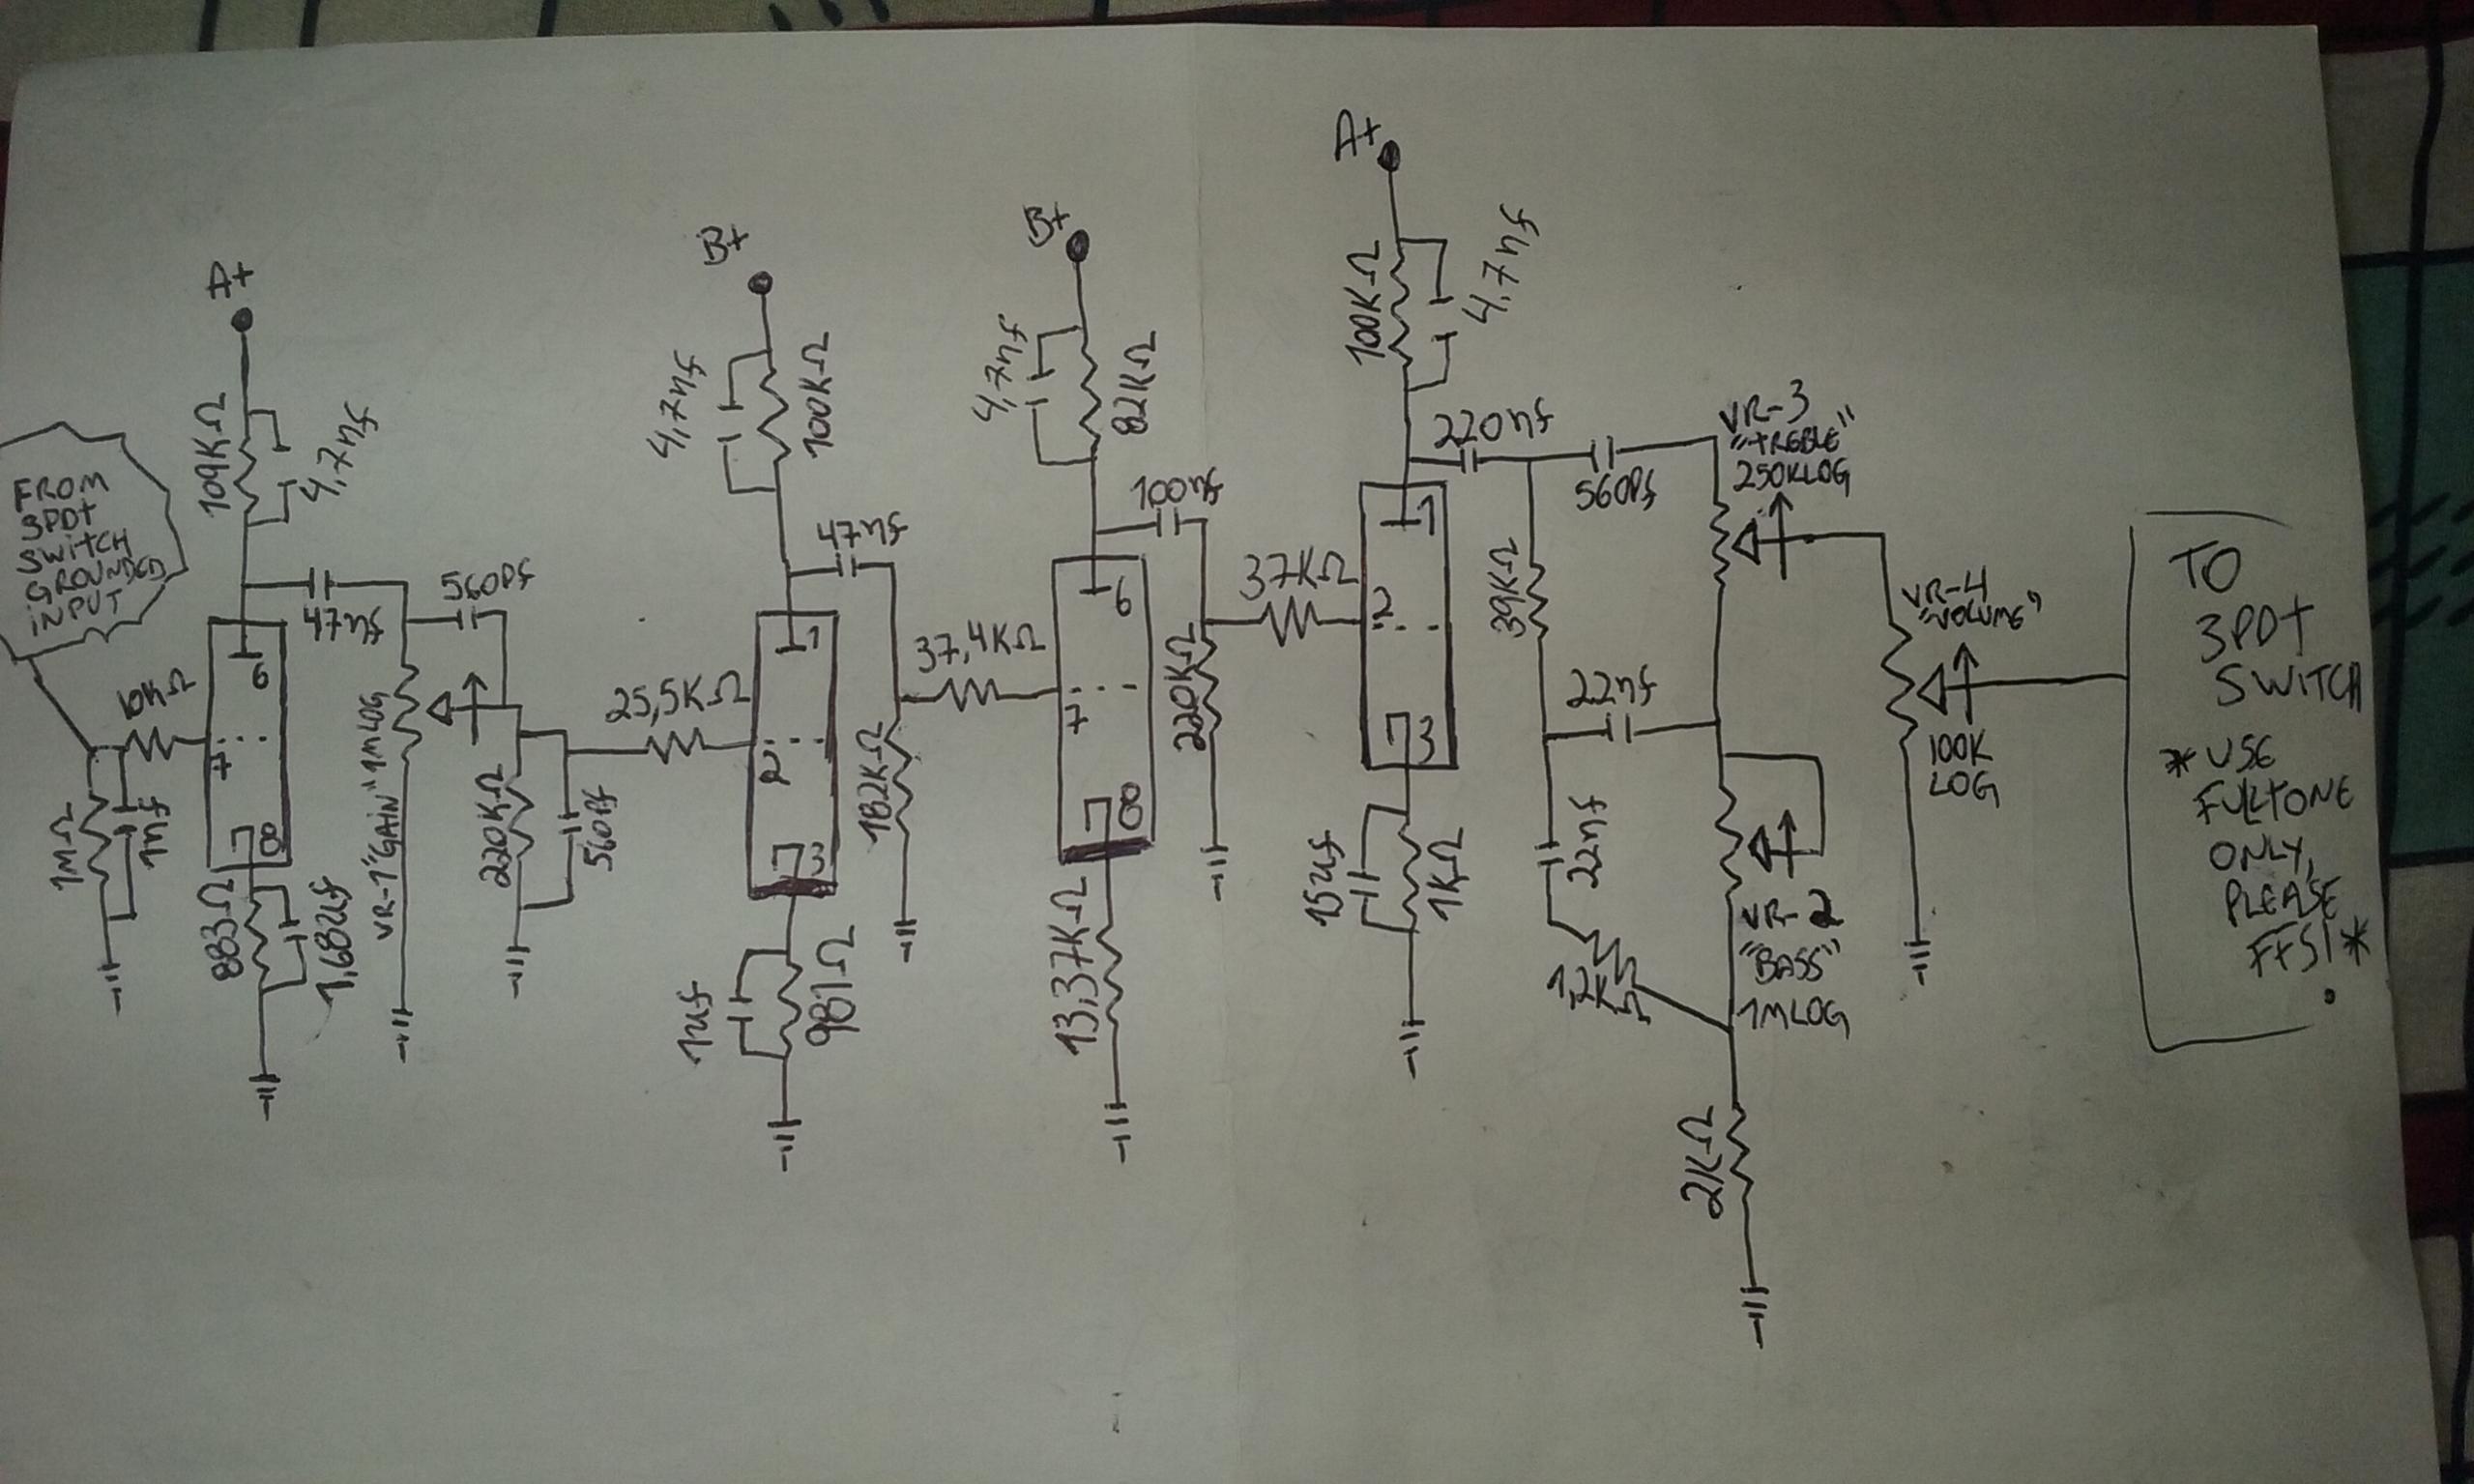 FROM
3PDT
SWITCH
GROUNDED
INPUT
1MΩ
1nf
A+
109KΩ
4,7nf
7
6
8
883Ω
1,682uf
47nf
560Pf
VR-1 "GAIN" 1MLOG
220KΩ
560Pf
25,5KΩ
B+
4,7nf
100KΩ
2
1
3
1uf
981Ω
47nf
182KΩ
37,4KΩ
B+
4,7nf
82KΩ
7
6
8
13,37KΩ
100nf
220KΩ
37KΩ
A+
100KΩ
4,7nf
2
1
3
15uf
1KΩ
220nf
560Pf
39KΩ
22nf
22nf
VR-3
"TREBLE"
250KLOG
VR-2
"BASS"
1MLOG
2KΩ
VR-4
"VOLUME"
100K
LOG
TO
3PDT
SWITCH
*USE
FULTONE
ONLY,
PLEASE
FFS!*